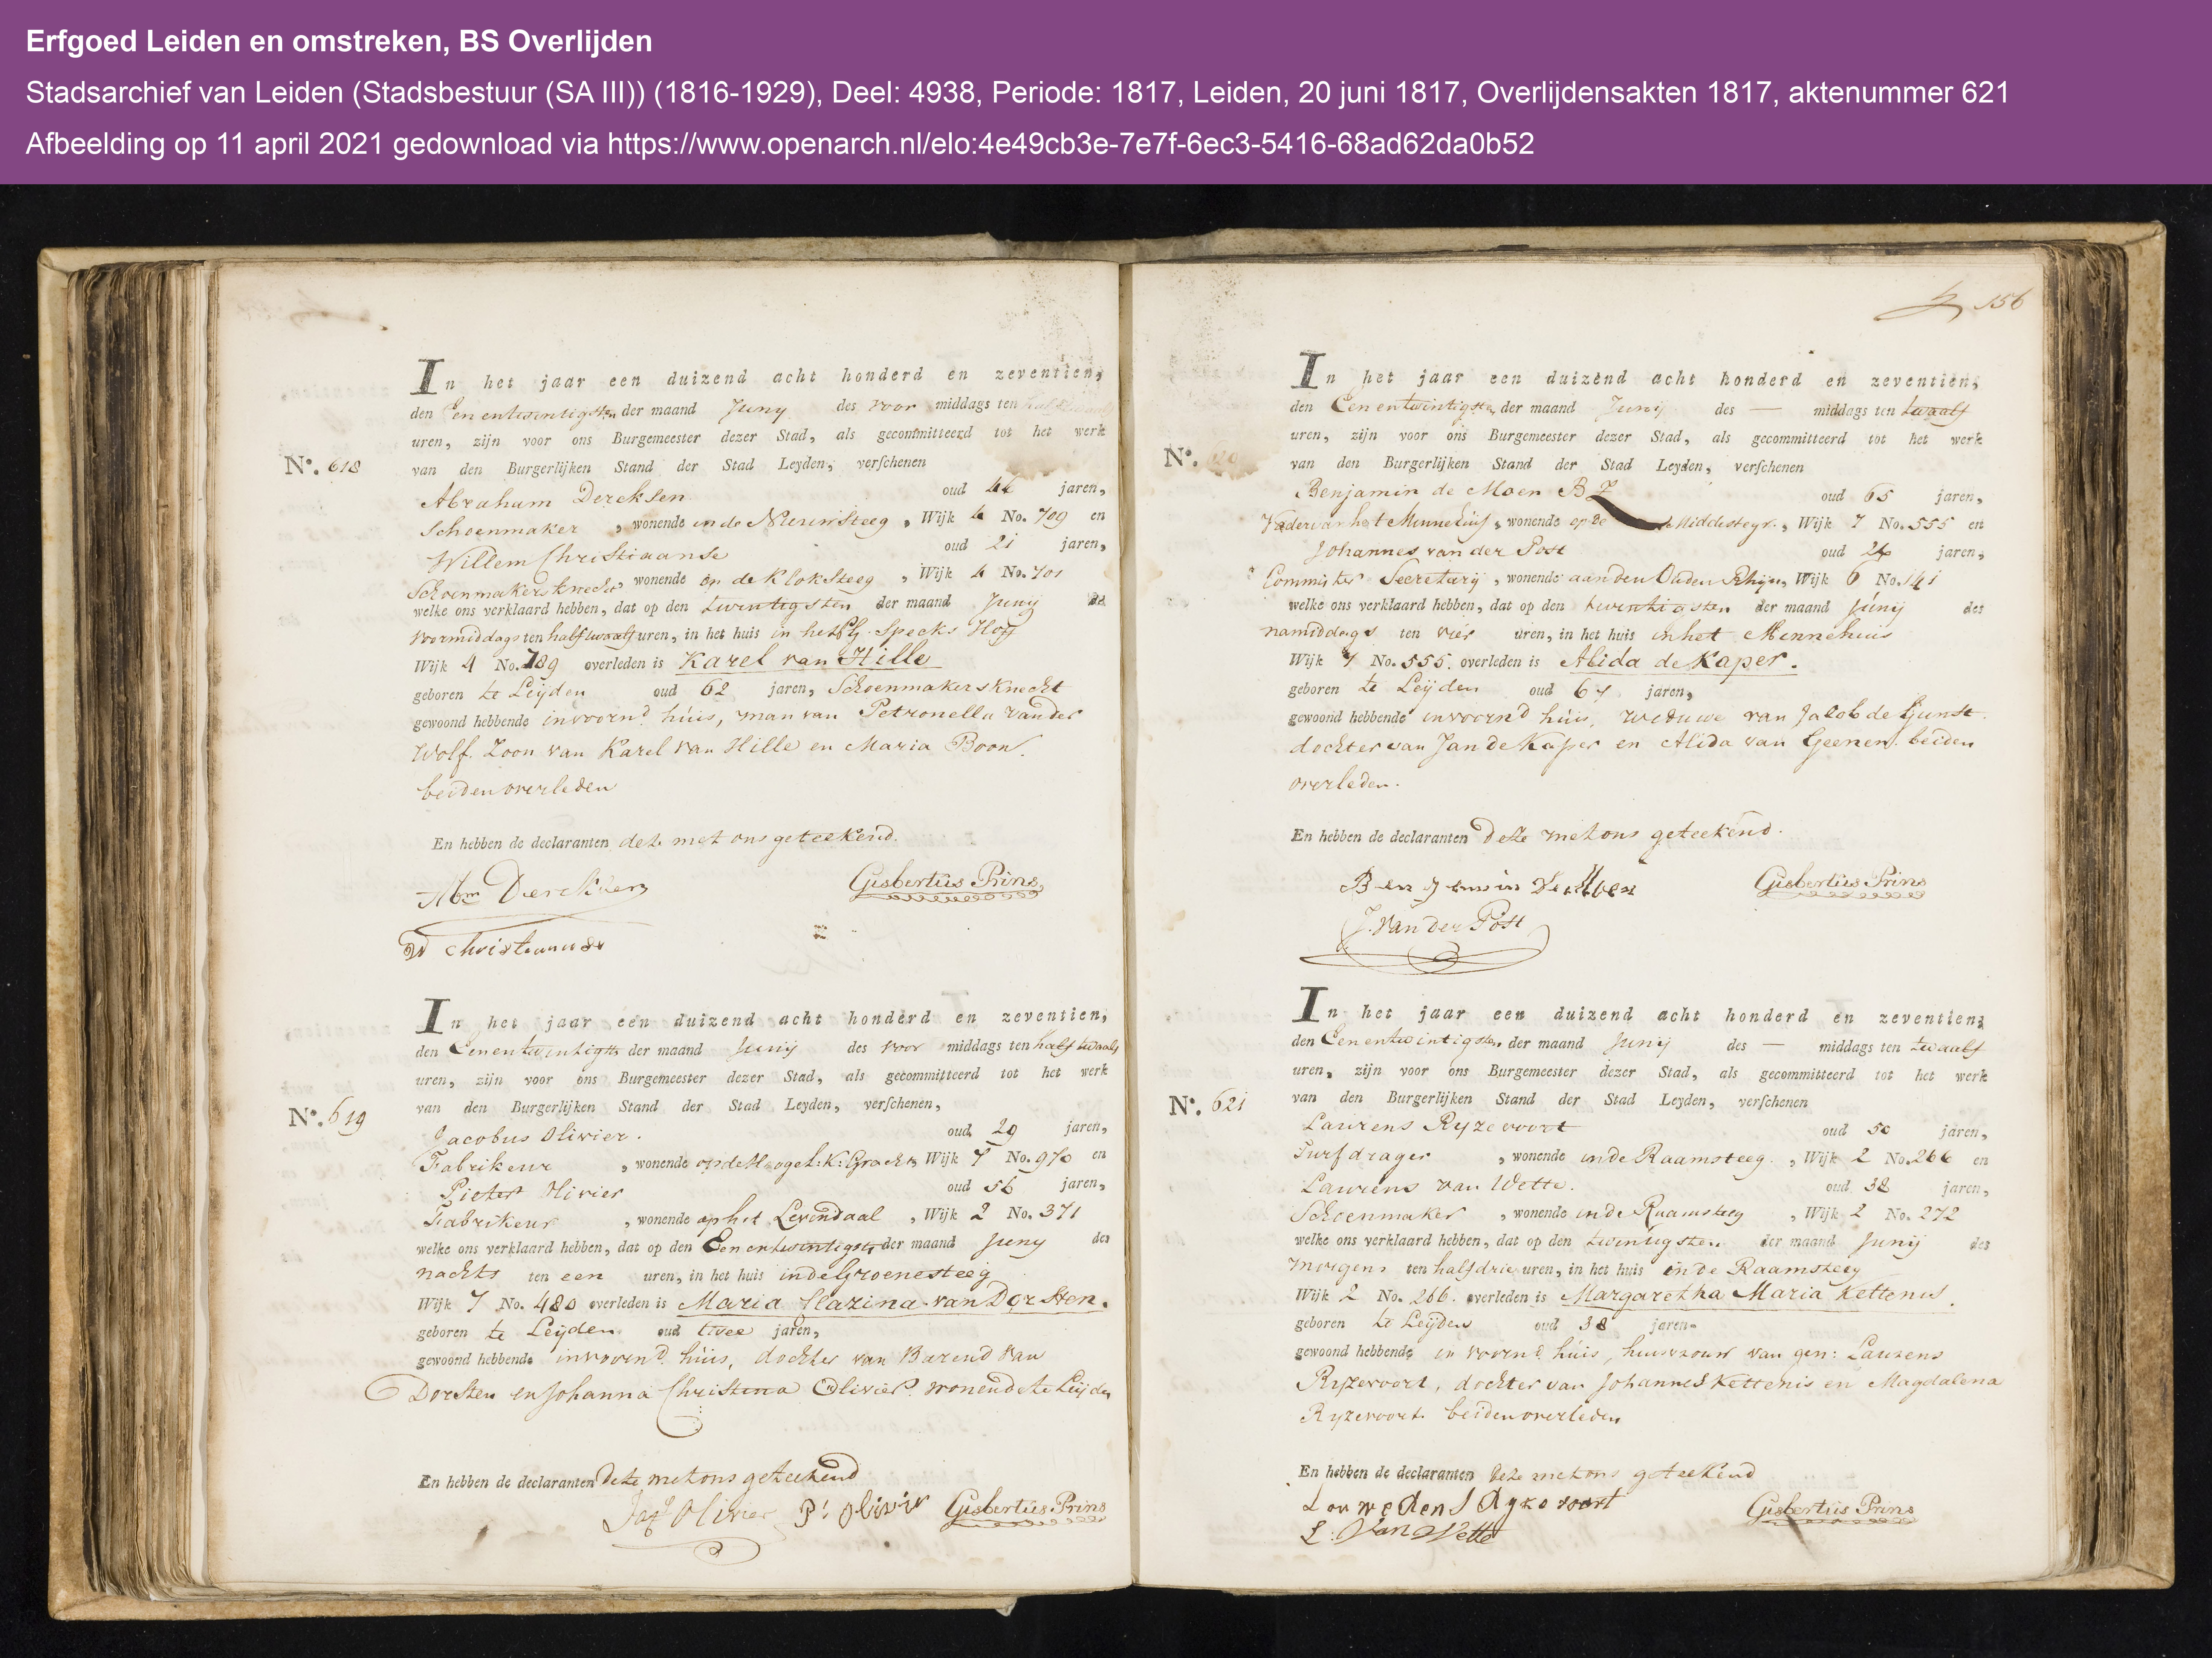 Erfgoed Leiden en omstreken, BS Overlijden
Stadsarchief van Leiden (Stadsbestuur (SA III)) (1816-1929), Deel: 4938, Periode: 1817, Leiden, 20 juni 1817, Overlijdensakten 1817, aktenummer 621
Afbeelding op 11 april 2021 gedownload via https://www.openarch.nl/elo:4e49cb3e-7e7f-6ec3-5416-68ad62da0b52
In het jaar een duizend acht honderd en zeventien,
den Eenentwintigsten der maand Juny des voor middags ten half twaalf
uren, zijn voor ons Burgemeester dezer Stad, als gecommitteerd tot het werk
No. 618 van den Burgerlijken Stand der Stad Leyden, verschenen
Abraham Dercksen oud 44 jaren,
Schoenmaker, wonende in de Nieuwsteeg, Wijk 4 No. 709 en
Willem Christiaanse oud 21 jaren,
Schoenmakersknecht wonende op de Kloksteeg, Wijk 4 No. 701
welke ons verklaard hebben, dat op den twintigsten der maand Junij des
voormiddags ten half twaalf uren, in het huis in het Specks Hoff
Wijk 4 No. 789 overleden is Karel van Hille
geboren te Leijden oud 62 jaren, Schoenmakersknecht
gewoond hebbende in voornd. huis, man van Petronella vander
Wolf. Zoon van Karel van Hille en Maria Boon.
beiden overleden
En hebben de declaranten deze met ons geteekend.
Abm Dercksen Gisbertus Prins
W Christiaanse
In het jaar een duizend acht honderd en zeventien,
den Eenentwintigste der maand Junij des voor middags ten half twaalf
uren, zijn voor ons Burgemeester dezer Stad, als gecommitteerd tot het werk
No. 619 van den Burgerlijken Stand der Stad Leyden, verschenen,
Jacobus Olivier. oud 29 jaren,
Fabrikeur, wonende op de Hogel: K: Gracht, Wijk 7 No. 970 en
Pieter Olivier oud 56 jaren,
Fabrikeur, wonende op het Levendaal, Wijk 2 No. 371
welke ons verklaard hebben, dat op den Eenentwintigste der maand Juny des
nachts ten een uren, in het huis in de Groenesteeg
Wijk 7 No. 480 overleden is Maria Clazina van Dorsten.
geboren te Leijden oud twee jaren,
gewoond hebbende in voornd. huis, dochter van Barend van
Dorsten en Johanna Christina Olivier wonende te Leijden
En hebben de declaranten deze met ons geteekend
Jas Olivier P: Olivier Gisbertus Prins
156
In het jaar een duizend acht honderd en zeventien,
den Eenentwintigste der maand Junij des — middags ten twaalf
uren, zijn voor ons Burgemeester dezer Stad, als gecommitteerd tot het werk
No. 620 van den Burgerlijken Stand der Stad Leyden, verschenen
Benjamin de Moen BZ oud 65 jaren,
Vader van het Minnehuis, wonende op de Middelstegr., Wijk 7 No. 555 en
Johannes van der Post oud 26 jaren,
Commis ter Secretarij, wonende aan den Ouden Rhijn, Wijk 6 No. 141
welke ons verklaard hebben, dat op den twintigsten der maand Junij des
namiddags ten vier uren, in het huis in het Minnehuis
Wijk 7 No. 555. overleden is Alida de Kaper.
geboren te Leijden oud 67 jaren,
gewoond hebbende in voornd huis, weduwe van Jacob de Gunst.
dochter van Jan de Kaper en Alida van Geenen. beiden
overleden.
En hebben de declaranten deze met ons geteekend.
Benjamin de Moen Gisbertus Prins
J. van der Post
In het jaar een duizend acht honderd en zeventien,
den Eenentwintigsten der maand Junij des — middags ten twaalf
uren, zijn voor ons Burgemeester dezer Stad, als gecommitteerd tot het werk
No. 621 van den Burgerlijken Stand der Stad Leyden, verschenen
Laurens Ryzevoort oud 50 jaren,
Turfdrager, wonende in de Raamsteeg., Wijk 2 No. 266 en
Laurens van Wette. oud 38 jaren,
Schoenmaker, wonende in de Raamsteeg, Wijk 2 No. 272
welke ons verklaard hebben, dat op den twintigsten der maand Junij des
morgens ten half drie uren, in het huis in de Raamsteeg
Wijk 2 No. 266. overleden is Margaretha Maria Kettenis.
geboren te Leijden oud 38 jaren.
gewoond hebbende in voornd. huis, huisvrouw van gen: Laurens
Ryzevoort, dochter van Johannes Kettenis en Magdalena
Ryzevoort. beiden overleden
En hebben de declaranten deze met ons geteekend
Gisbertus Prins
L. van Wette